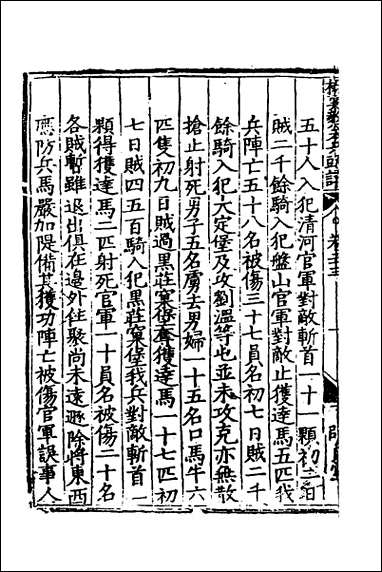 五十人入犯清河官軍對敵斬首一十一顆初三日
賊二千餘騎入犯盤山官軍對敵止獲達馬五匹我
兵陣亡五十八名被傷三十七員名初七日賊二千
餘騎入犯大定堡及攻劉溫等屯並未攻克亦無散
搶止射死男子五名虜去男婦一十五名口馬牛六
匹隻初九日賊過黑莊窠堡奪獲達馬一十七匹初
七日賊四五百騎入犯黑莊窠堡我兵對敵斬首一
顆得獲達馬二匹射死官軍一十員名被傷二十名
各賊暫雖退出俱在邊外住聚尚未遠遁除將東西
應防兵馬嚴加隄備其獲功陣亡被傷官軍誤事人